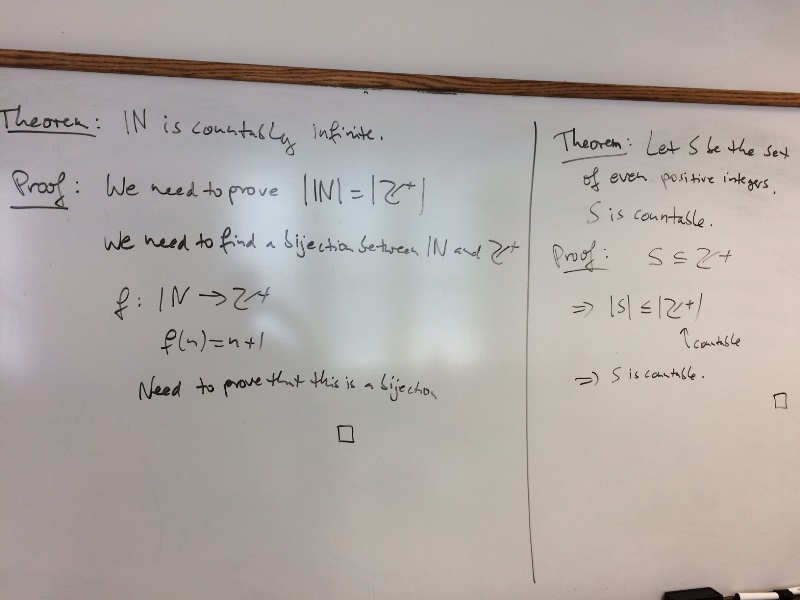 Theorem: ℕ is countably infinite.
Proof: We need to prove |ℕ| = |ℤ⁺|
We need to find a bijection between ℕ and ℤ⁺
f: ℕ → ℤ⁺
f(n) = n+1
Need to prove that this is a bijection
□
Theorem: Let S be the set
of even positive integers.
S is countable.
Proof: S ⊆ ℤ⁺
⇒ |S| ≤ |ℤ⁺|
↑ countable
⇒ S is countable.
□